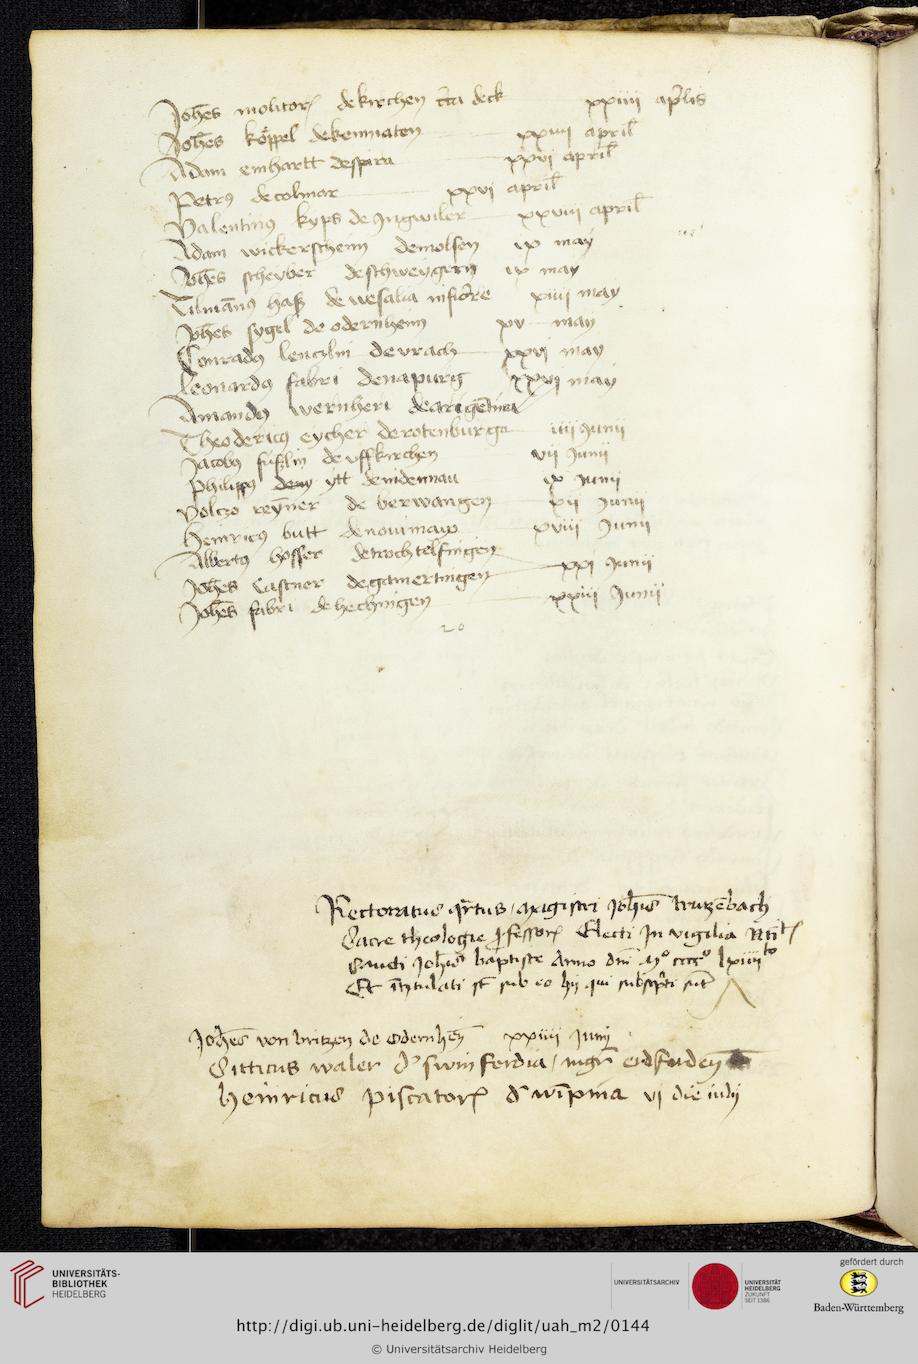 Joh̄es molitor de kirchen c̄ca deck xxiiii ap̄lis
Joh̄es köppel de kenmaten xxvii april̄
Adam emhartt de spira xxvi april̄
Petrꝰ de colmar xxvi april̄
Valentinꝰ kyps de Ingwiler xxviii april̄
Adam wickerschenn de molsen ix may
Joh̄es schryber de schweygern ix may
Tilmānꝰ haß de wesalia infior̄e xiiii may
Joh̄es sygel de odernheim xv may
Conradꝰ lenczlin de vrach xxvi may
Leonardꝰ fabri de napurg xxvi may
Amandꝰ wernheri de argētina
Theodericꝰ eycher de rotenburga iiii Junii
Jacobꝰ füßlin de vffkirchen vii Junii
Philippꝰ ytt de nidennau ix Junii
Volczo reyner de berwangen xii Junii
Heinricꝰ butt de nouimaio xviii Junii
Albertꝰ hosser de trochtelfingen
Joh̄es Castner de gamertingen xxi Junii
Joh̄es fabri de hechingen xxiii Junii
20
Rectoratus qr̄tus magistri Joh̄is trutzēbach
Sacre theologie ꝓfessor Electi In vigilia Nati
Sancti Joh̄is baptiste Anno dn̄i Mº ccccº lxiiiito
Et īntytulati st̄ sub eo lij qui subsc̄pti sūt
Joh̄es von britzen de Odernhē xxiiii Junij
Citticus waler d' swinferdia mgr̄ erdfurdeñ
heinricus piscator d' wīpina vj die iulij
UNIVERSITÄTS-
BIBLIOTHEK
HEIDELBERG
UNIVERSITÄTSARCHIV
UNIVERSITÄT
HEIDELBERG
ZUKUNFT
SEIT 1386
gefördert durch
Baden-Württemberg
http://digi.ub.uni-heidelberg.de/diglit/uah_m2/0144
© Universitätsarchiv Heidelberg